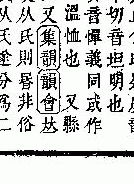 切音坦明也
音憚義同或作
溫恤也 又縣
又集韻韻會𠀤
从氏則昬非俗
从氏遂分為二